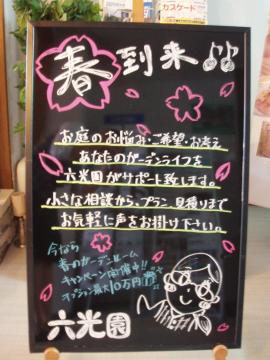 カスケード
春到来♪♪
お庭のお悩み・ご希望・お考え
あなたのガーデンライフを
六光園がサポート致します。
小さな相談から、プラン、見積りまで
お気軽に声をお掛け下さい。
今なら
春のガーデンルーム
キャンペーン開催中!!
オプション最大10万円
六光園